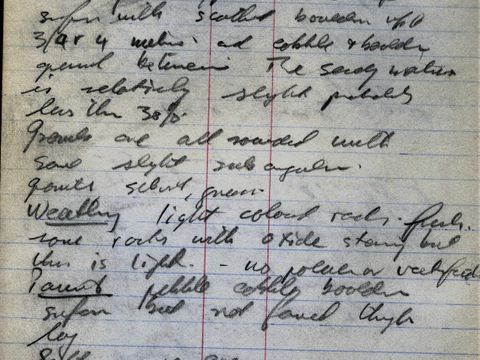 surface with scattered boulders up to
3 or 4 metres and cobble & boulder
gravel between. The sandy matrix
is relatively slight probably
less than 30%.
Gravels are all rounded with
some slight sub angular.
granite schist, gneiss
Weathering light colour rocks. fresh.
some rocks with oxide staining but
this is light. - no
Parent pebble cobbly boulder
surface but not found though